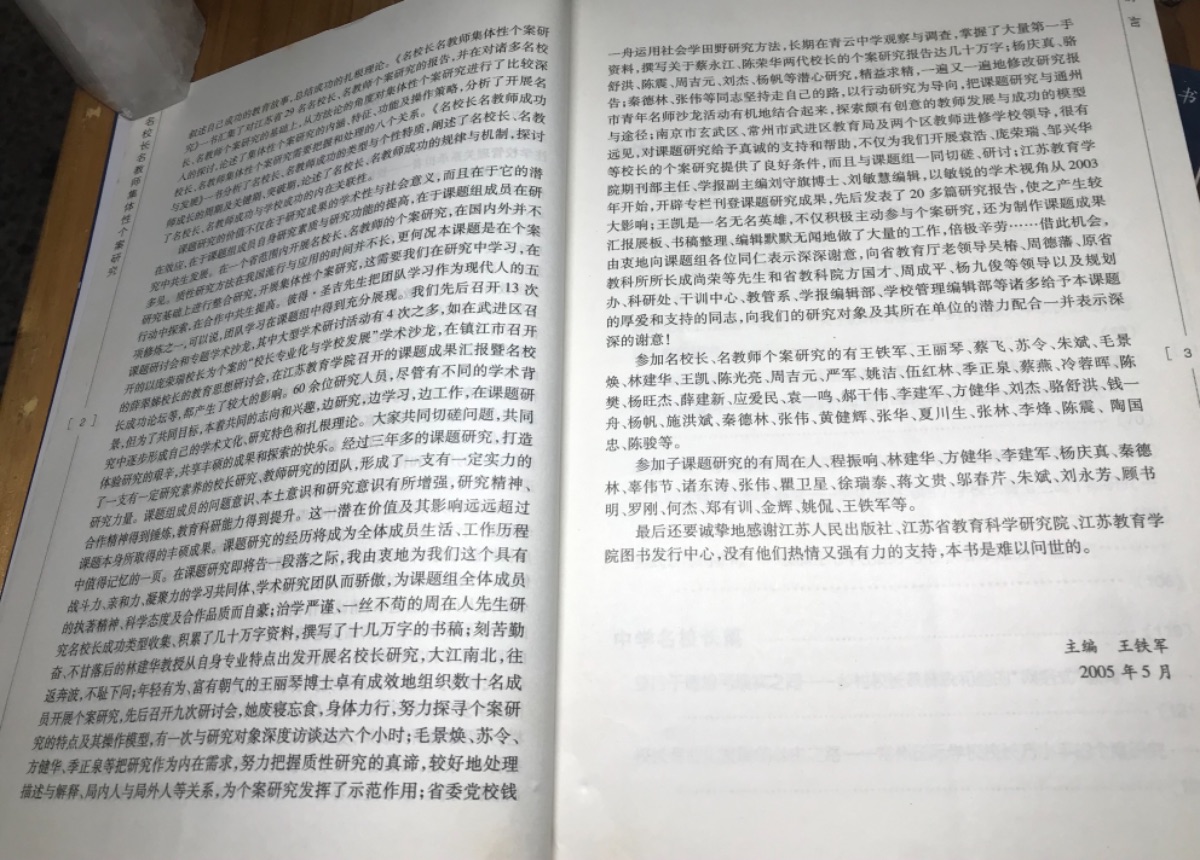 名校长名教师集体性个案研究
[ 2 ]
叙述自己成功的教育故事、总结成功的扎根理论。《名校长名教师集体性个案研
究》一书汇集了对江苏省29名名校长、名教师个案研究的报告,并在对诸多名校
长、名教师个案研究的基础上,从方法论的角度对集体性个案研究进行了比较深
人的探讨,论述了集体性个案研究的内涵、特征、功能及操作策略,分析了开展名
校长、名教师集体性个案研究需要把握和处理的八个关系。《名校长名教师成功
与发展》一书分析了名校长、名教师成功的类型与个性特质,阐述了名校长、名教
师成长的周期及关键期、突破期,论述了名校长、名教师成功的规律与机制,探讨
了名校长、名教师成功与学校成功的内在关联性。
课题研究的价值不仅在于研究成果的学术性与社会意义,而且在于它的潜
在效应,在于课题组成员自身研究素质与研究功能的提高,在于课题组成员在研
究中共生发展。在一个省范围内开展名校长、名教师的个案研究,在国内外并不
多见。质性研究方法在我国流行与应用的时间并不长,更何况本课题是在个案
研究基础上进行整合研究,开展集体性个案研究,这需要我们在研究中学习,在
行动中探索,在合作中共生提高。彼得·圣吉先生把团队学习作为现代人的五
项修炼之一,可以说,团队学习在课题组中得到充分展现。我们先后召开13次
课题研讨会和专题学术沙龙,其中大型学术研讨活动有4次之多,如在武进区召
开的以庞荣瑞校长为个案的“校长专业化与学校发展”学术沙龙,在镇江市召开
的薛翠娣校长的教育思想研讨会,在江苏教育学院召开的课题成果汇报暨名校
长成功论坛等,都产生了较大的影响。60余位研究人员,尽管有不同的学术背
景,但为了共同目标,本着共同的志向和兴趣,边研究,边学习,边工作,在课题研
究中逐步形成自己的学术文化、研究特色和扎根理论。大家共同切磋问题,共同
体验研究的艰辛,共享丰硕的成果和探索的快乐。经过三年多的课题研究,打造
了一支有一定研究素养的校长研究、教师研究的团队,形成了一支有一定实力的
研究力量。课题组成员的问题意识、本土意识和研究意识有所增强,研究精神、
合作精神得到锤炼,教育科研能力得到提升。这一潜在价值及其影响远远超过
课题本身所取得的丰硕成果。课题研究的经历将成为全体成员生活、工作历程
中值得记忆的一页。在课题研究即将告一段落之际,我由衷地为我们这个具有
战斗力、亲和力、凝聚力的学习共同体,学术研究团队而骄傲,为课题组全体成员
的执著精神、科学态度及合作品质而自豪;治学严谨、一丝不苟的周在人先生研
究名校长成功类型收集、积累了几十万字资料,撰写了十几万字的书稿;刻苦勤
奋、不甘落后的林建华教授从自身专业特点出发开展名校长研究,大江南北,往
返奔波,不耻下问;年轻有为、富有朝气的王丽琴博士卓有成效地组织数十名成
员开展个案研究,先后召开九次研讨会,她废寝忘食,身体力行,努力探寻个案研
究的特点及其操作模型,有一次与研究对象深度访谈达六个小时;毛景焕、苏令、
方健华、季正泉等把研究作为内在需求,努力把握质性研究的真谛,较好地处理
描述与解释、局内人与局外人等关系,为个案研究发挥了示范作用;省委党校钱
言
一舟运用社会学田野研究方法,长期在青云中学观察与调查,掌握了大量第一手
资料,撰写关于蔡永江、陈荣华两代校长的个案研究报告达几十万字;杨庆真、骆
舒洪、陈震、周吉元、刘杰、杨帆等潜心研究,精益求精,一遍又一遍地修改研究报
告;秦德林、张伟等同志坚持走自己的路,以行动研究为导向,把课题研究与通州
市青年名师沙龙活动有机地结合起来,探索颇有创意的教师发展与成功的模型
与途径;南京市玄武区、常州市武进区教育局及两个区教师进修学校领导,很有
远见,对课题研究给予真诚的支持和帮助,不仅为我们开展袁浩、庞荣瑞、邹兴华
等校长的个案研究提供了良好条件,而且与课题组一同切磋、研讨;江苏教育学
院期刊部主任、学报副主编刘守旗博士、刘敏慧编辑,以敏锐的学术视角从2003
年开始,开辟专栏刊登课题研究成果,先后发表了20多篇研究报告,使之产生较
大影响;王凯是一名无名英雄,不仅积极主动参与个案研究,还为制作课题成果
汇报展板、书稿整理、编辑默默无闻地做了大量的工作,倍极辛劳……借此机会,
由衷地向课题组各位同仁表示深深谢意,向省教育厅老领导吴椿、周德藩、原省
教科所所长成尚荣等先生和省教科院方国才、周成平、杨九俊等领导以及规划
办、科研处、干训中心、教管系、学报编辑部、学校管理编辑部等诸多给予本课题
的厚爱和支持的同志,向我们的研究对象及其所在单位的潜力配合一并表示深
深的谢意!
参加名校长、名教师个案研究的有王铁军、王丽琴、蔡飞、苏令、朱斌、毛景
焕、林建华、王凯、陈光亮、周吉元、严军、姚洁、伍红林、季正泉、蔡燕、冷蓉晖、陈
樊、杨旺杰、薛建新、应爱民、袁一鸣、郝干伟、李建军、方健华、刘杰、骆舒洪、钱一
舟、杨帆、施洪斌、秦德林、张伟、黄健辉、张华、夏川生、张林、李烽、陈震、陶国
忠、陈骏等。
参加子课题研究的有周在人、程振响、林建华、方健华、李建军、杨庆真、秦德
林、辜伟节、诸东涛、张伟、瞿卫星、徐瑞泰、蒋文贵、邬春芹、朱斌、刘永芳、顾书
明、罗刚、何杰、郑有训、金辉、姚侃、王铁军等。
最后还要诚挚地感谢江苏人民出版社、江苏省教育科学研究院、江苏教育学
院图书发行中心,没有他们热情又强有力的支持,本书是难以问世的。
主编 王铁军
2005年5月
[ 3
书